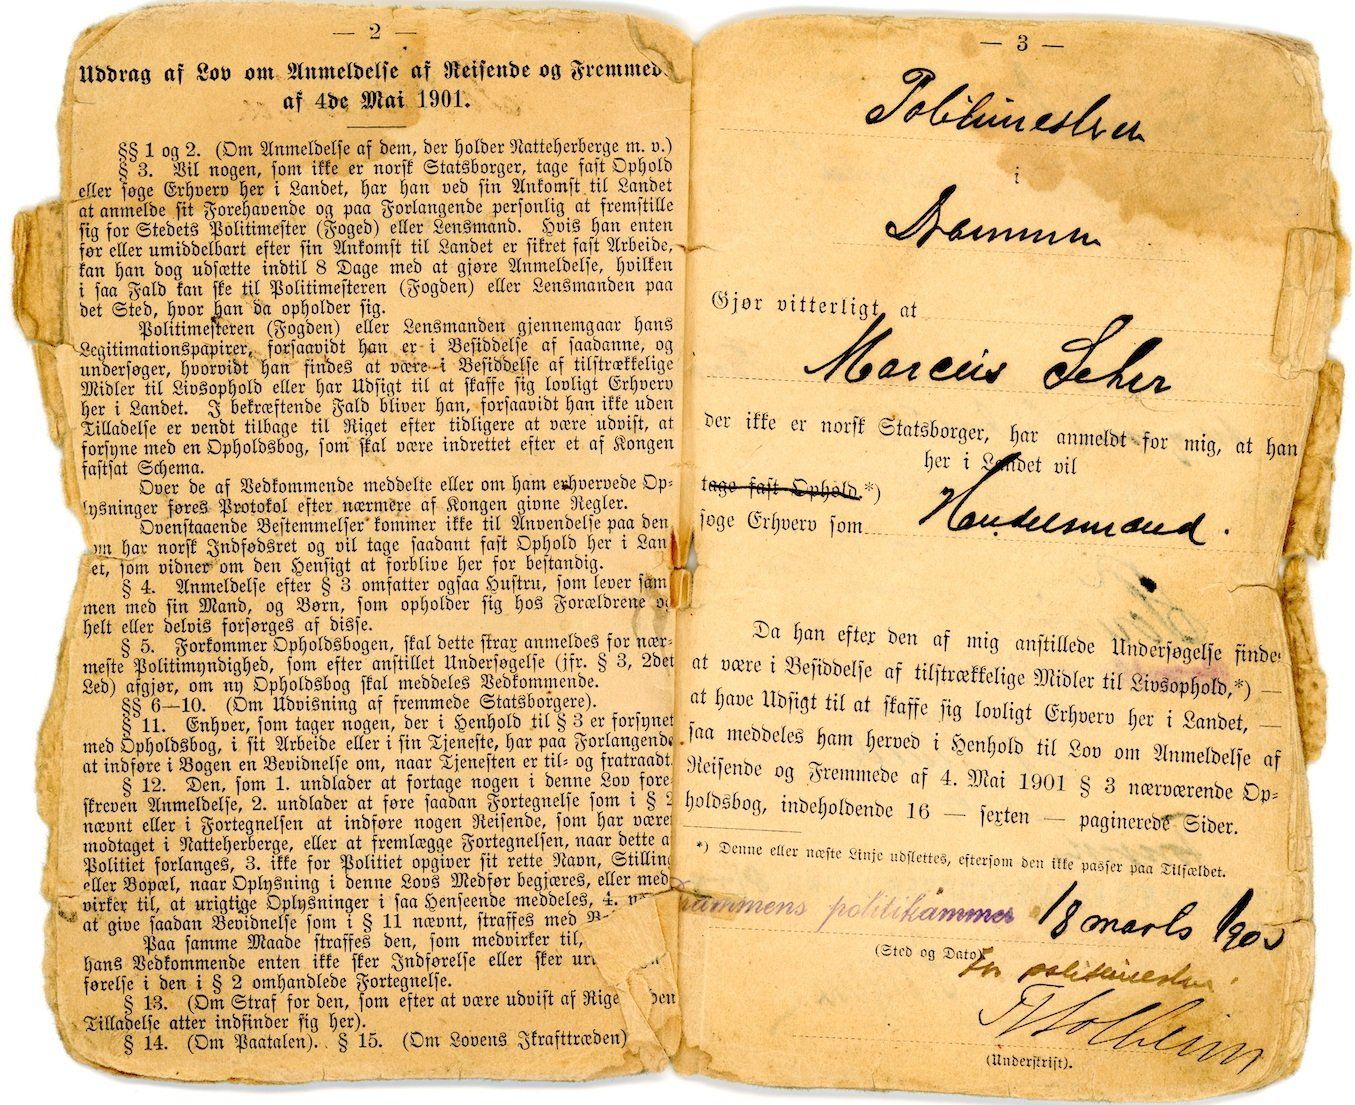 — 2 —
Uddrag af Lov om Anmeldelse af Reisende og Fremmede
af 4de Mai 1901.
§§ 1 og 2. (Om Anmeldelse af dem, der holder Natteherberge m. v.)
§ 3. Vil nogen, som ikke er norsk Statsborger, tage fast Ophold
eller søge Erhverv her i Landet, har han ved sin Ankomst til Landet
at anmelde sit Forehavende og paa Forlangende personlig at fremstille
sig for Stedets Politimester (Foged) eller Lensmand. Hvis han enten
før eller umiddelbart efter sin Ankomst til Landet er sikret fast Arbeide,
kan han dog udsætte indtil 8 Dage med at gjøre Anmeldelse, hvilken
i saa Fald kan ske til Politimesteren (Fogden) eller Lensmanden paa
det Sted, hvor han da opholder sig.
Politimesteren (Fogden) eller Lensmanden gjennemgaar hans
Legitimationspapirer, forsaavidt han er i Besiddelse af saadanne, og
undersøger, hvorvidt han findes at være i Besiddelse af tilstrækkelige
Midler til Livsophold eller har Udsigt til at skaffe sig lovligt Erhverv
her i Landet. I bekræftende Fald bliver han, forsaavidt han ikke uden
Tilladelse er vendt tilbage til Riget efter tidligere at være udvist, at
forsyne med en Opholdsbog, som skal være indrettet efter et af Kongen
fastsat Schema.
Over de af Vedkommende meddelte eller om ham erhvervede Op-
lysninger føres Protokol efter nærmere af Kongen givne Regler.
Ovenstaaende Bestemmelser kommer ikke til Anvendelse paa den,
om har norsk Indfødsret og vil tage saadant fast Ophold her i Lan
et, som vidner om den Hensigt at forblive her for bestandig.
§ 4. Anmeldelse efter § 3 omfatter ogsaa Hustru, som lever sam
men med sin Mand, og Børn, som opholder sig hos Forældrene og
helt eller delvis forsørges af disse.
§ 5. Forkommer Opholdsbogen, skal dette strax anmeldes for nær-
meste Politimyndighed, som efter anstillet Undersøgelse (jfr. § 3, 2det
Led) afgjør, om ny Opholdsbog skal meddeles Vedkommende.
§§ 6—10. (Om Udvisning af fremmede Statsborgere).
§ 11. Enhver, som tager nogen, der i Henhold til § 3 er forsynet
med Opholdsbog, i sit Arbeide eller i sin Tjeneste, har paa Forlangende
at indføre i Bogen en Bevidnelse om, naar Tjenesten er til- og fratraadt.
§ 12. Den, som 1. undlader at fortage nogen i denne Lov fore-
skreven Anmeldelse, 2. undlader at føre saadan Fortegnelse som i § 2
nævnt eller i Fortegnelsen at indføre nogen Reisende, som har være
modtaget i Natteherberge, eller at fremlægge Fortegnelsen, naar dette a
Politiet forlanges, 3. ikke for Politiet opgiver sit rette Navn, Stilling
eller Bopæl, naar Oplysning i denne Lovs Medfør begjæres, eller med
virker til, at urigtige Oplysninger i saa Henseende meddeles, 4.
at give saadan Bevidnelse som i § 11 nævnt, straffes med
Paa samme Maade straffes den, som medvirker til,
hans Vedkommende enten ikke sker Indførelse eller sker
førelse i den i § 2 omhandlede Fortegnelse.
§ 13. (Om Straf for den, som efter at være udvist af Rige den
Tilladelse atter indfinder sig her).
§ 14. (Om Paatalen). § 15. (Om Lovens Ikrafttræden)
— 3 —
Politimesteren
i
Drammen
Gjør vitterligt, at
Marcus Scher
der ikke er norsk Statsborger, har anmeldt for mig, at han
her i Landet vil
tage fast Ophold.*)
søge Erhverv som Handelsmand.
Da han efter den af mig anstillede Undersøgelse finde
at være i Besiddelse af tilstrækkelige Midler til Livsophold,*) —
at have Udsigt til at skaffe sig lovligt Erhverv her i Landet, —
saa meddeles ham herved i Henhold til Lov om Anmeldelse af
Reisende og Fremmede af 4. Mai 1901 § 3 nærværende Op-
holdsbog, indeholdende 16 — sexten — paginerede Sider.
*) Denne eller næste Linje udslettes, eftersom den ikke passer paa Tilfældet.
Drammens politikammer 18 marts
(Sted og Dato)
for politimesteren
(Underskrift).